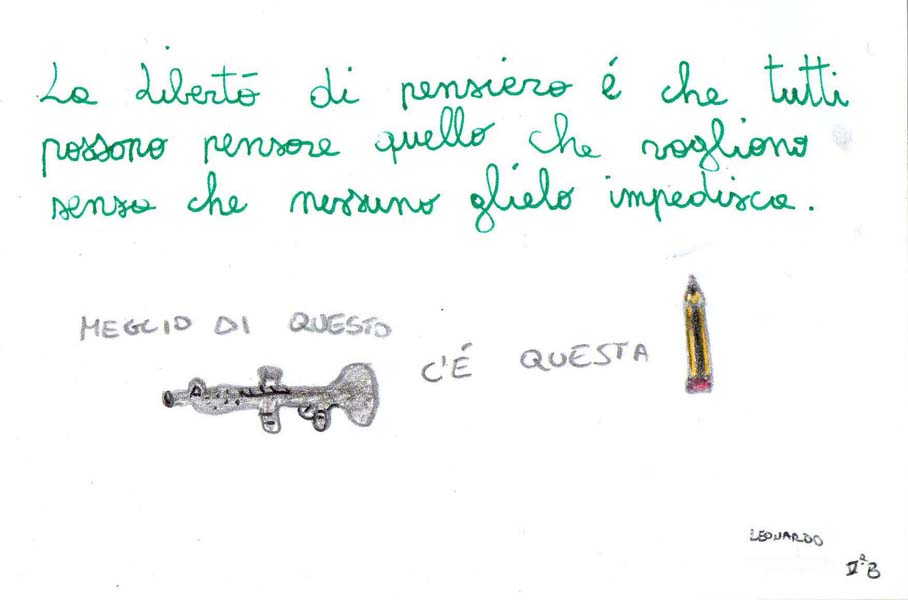 La libertà di pensiero é che tutti
possono pensare quello che vogliono
senza che nessuno glielo impedisca.
MEGLIO DI QUESTO
C'É QUESTA
LEONARDO
Vª B